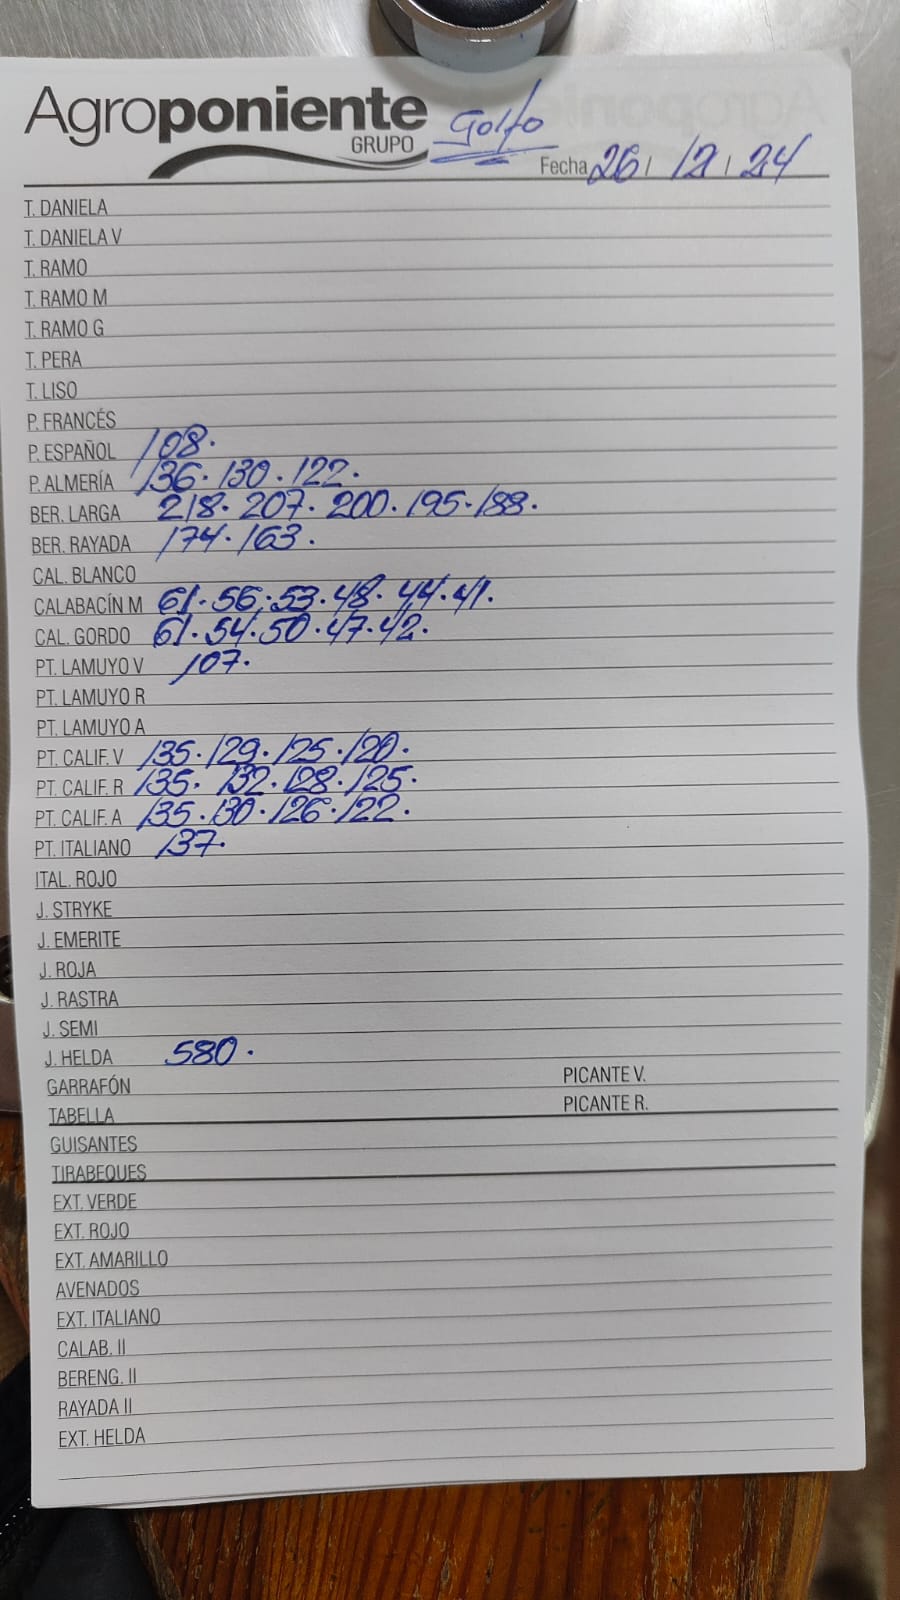 Agroponiente
GRUPO
Golfo
Fecha 26 / 12 / 24
T. DANIELA
T. DANIELA V
T. RAMO
T. RAMO M
T. RAMO G
T. PERA
T. LISO
P. FRANCÉS
P. ESPAÑOL 108.
P. ALMERÍA 136. 130. 122.
BER. LARGA 218. 207. 200. 195. 188.
BER. RAYADA 174. 163.
CAL. BLANCO
CALABACÍN M 61. 56. 53. 48. 44. 41.
CAL. GORDO 61. 54. 50. 47. 42.
PT. LAMUYO V 107.
PT. LAMUYO R
PT. LAMUYO A
PT. CALIF. V 135. 129. 125. 120.
PT. CALIF. R 135. 132. 128. 125.
PT. CALIF. A 135. 130. 126. 122.
PT. ITALIANO 137.
ITAL. ROJO
J. STRYKE
J. EMERITE
J. ROJA
J. RASTRA
J. SEMI
J. HELDA 580.
GARRAFÓN PICANTE V.
TABELLA PICANTE R.
GUISANTES
TIRABEQUES
EXT. VERDE
EXT. ROJO
EXT. AMARILLO
AVENADOS
EXT. ITALIANO
CALAB. II
BERENG. II
RAYADA II
EXT. HELDA